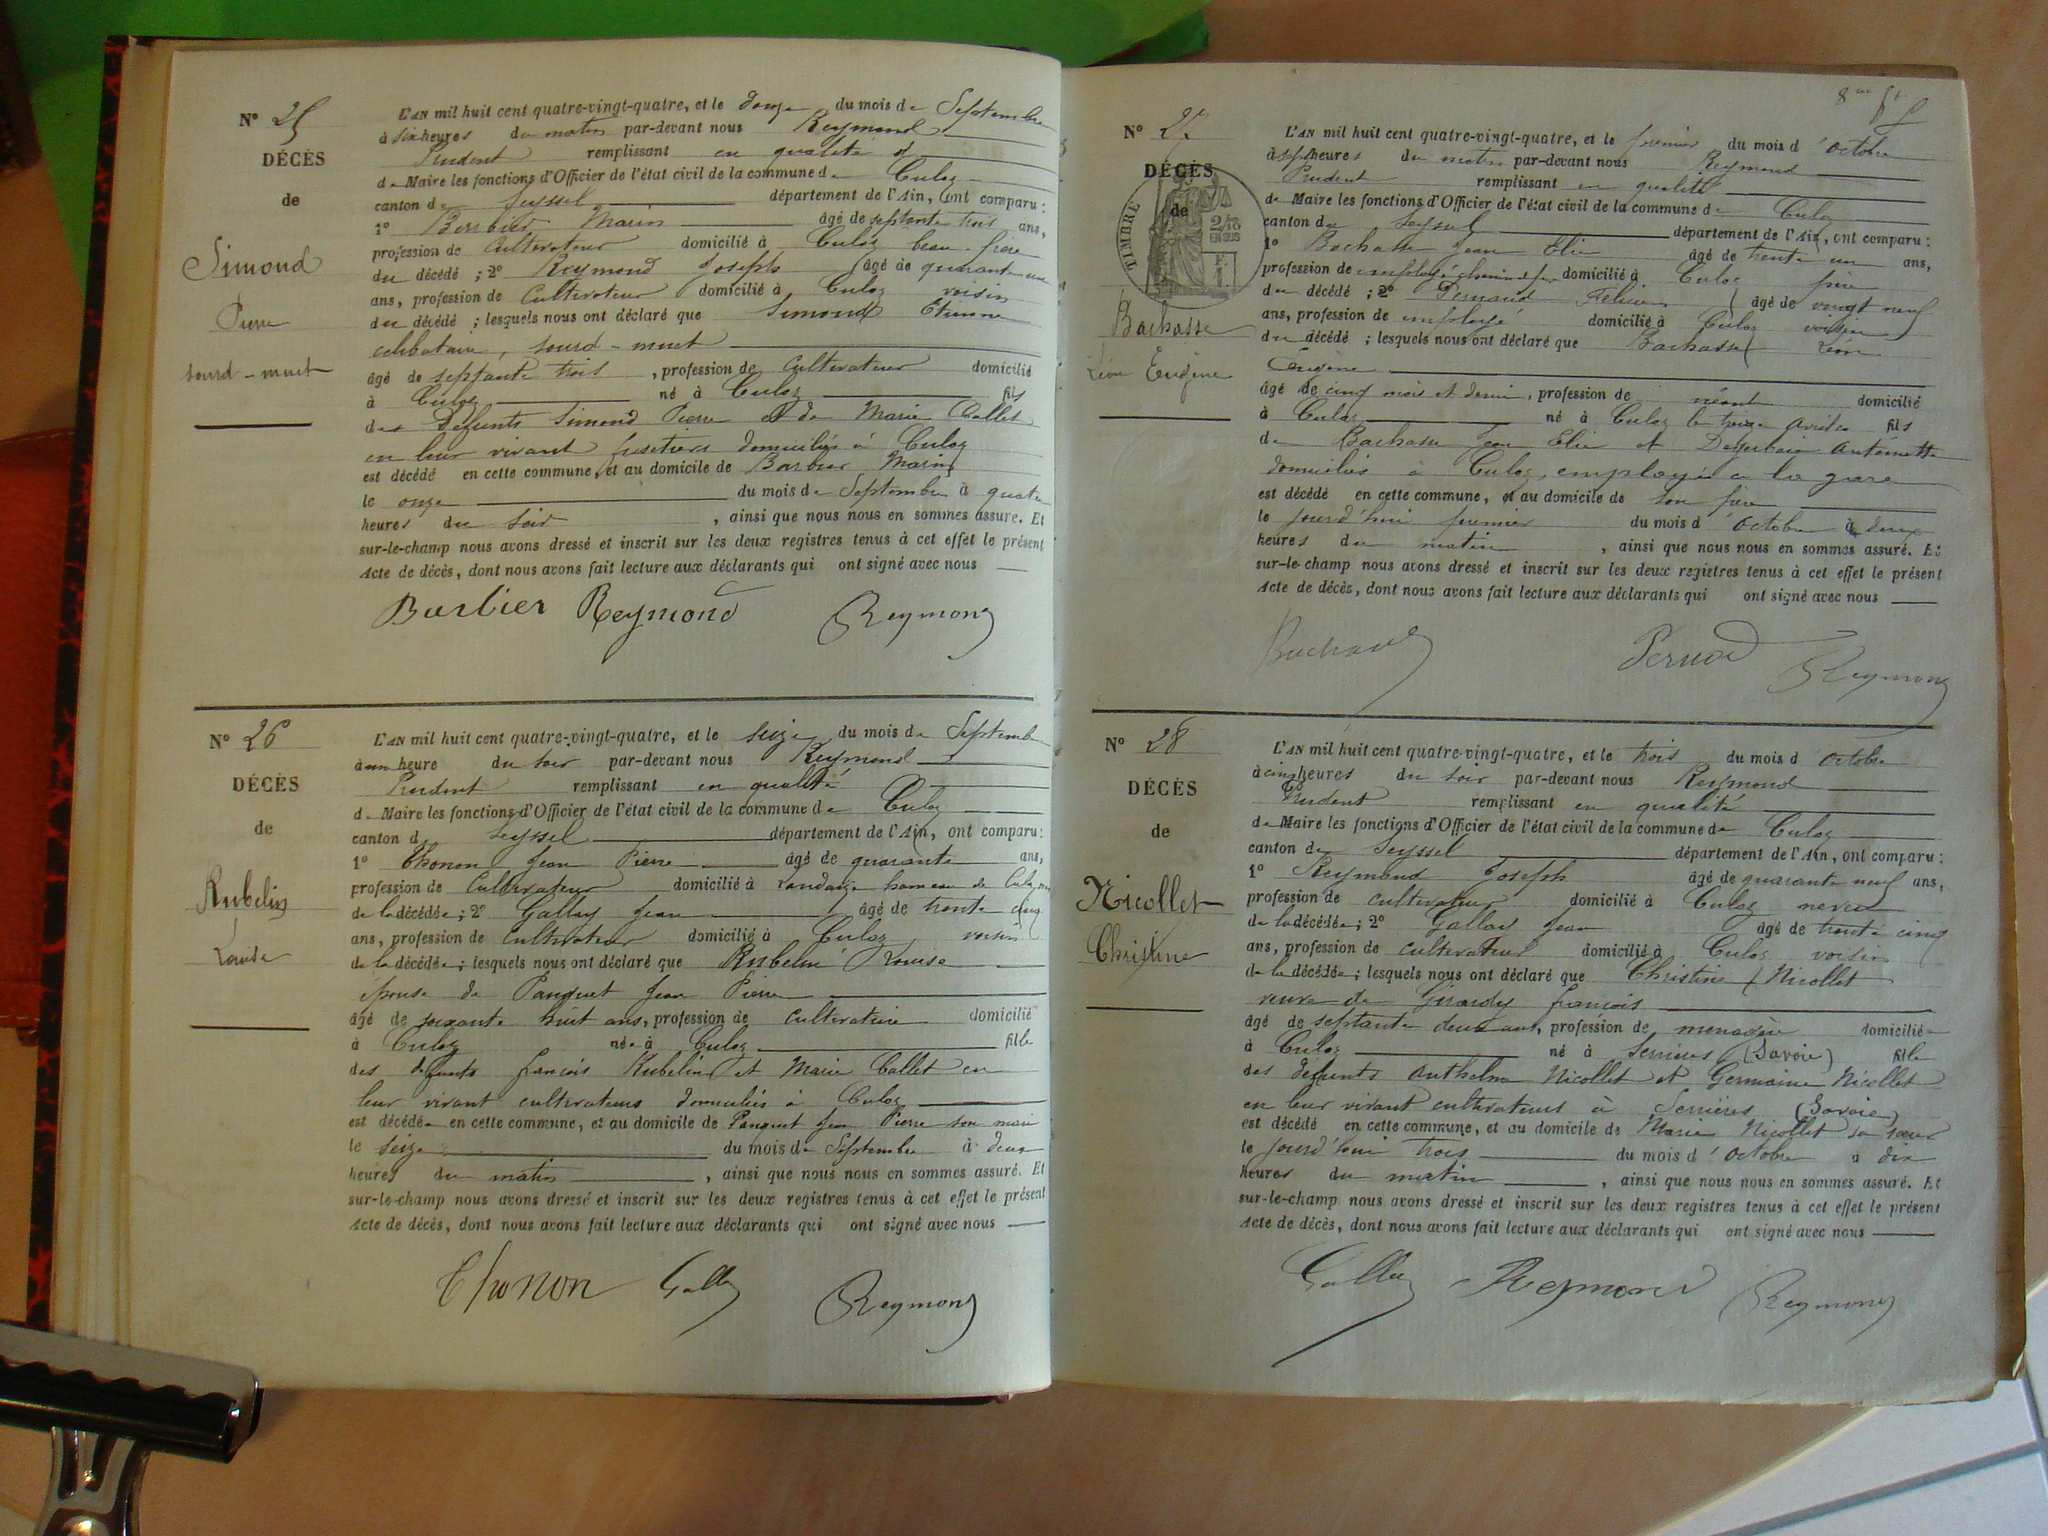 N° 25
DÉCÈS
de
Simond
Pierre
sourd-muet
L'AN mil huit cent quatre-vingt-quatre, et le douze du mois de Septembre
à six heures du matin par-devant nous Reymond
Prudent remplissant en qualité d
de Maire les fonctions d'Officier de l'état civil de la commune de Culoz
canton de Seyssel département de l'Ain, ont comparu :
1° Barbier Marin âgé de septante trois ans,
profession de Cultivateur domicilié à Culoz beau-frère
du décédé ; 2° Reymond Joseph âgé de quarante neuf
ans, profession de Cultivateur domicilié à Culoz voisin
du décédé ; lesquels nous ont déclaré que Simond Etienne
célibataire, sourd-muet
âgé de septante trois , profession de Cultivateur domicilié
à Culoz né à Culoz fils
des Défunts Simond Pierre et de Marie Callet
en leur vivant domiciliés à Culoz
est décédé en cette commune, et au domicile de Barbier Marin
le onze du mois de Septembre à quatre
heures du soir , ainsi que nous nous en sommes assuré. Et
sur-le-champ nous avons dressé et inscrit sur les deux registres tenus à cet effet le présent
Acte de décès, dont nous avons fait lecture aux déclarants qui ont signé avec nous
Barbier Reymond Reymond
N° 26
DÉCÈS
de
Rubelin
Louise
L'AN mil huit cent quatre-vingt-quatre, et le seize du mois de Septembre
à un heure du soir par-devant nous Reymond
Prudent remplissant en qualité
de Maire les fonctions d'Officier de l'état civil de la commune de Culoz
canton de Seyssel département de l'Ain, ont comparu :
1° Thonon Jean Pierre âgé de quarante ans,
profession de Cultivateur domicilié à Landaize hameau de Culoz
de la décédée ; 2° Gallay Jean âgé de trente cinq
ans, profession de Cultivateur domicilié à Culoz voisin
de la décédée ; lesquels nous ont déclaré que Rubelin Louise
épouse de Panguet Jean Pierre
âgé de soixante huit ans, profession de cultivatrice domicilié
à Culoz née à Culoz fille
des défunts françois Rubelin et Marie Callet en
leur vivant cultivateurs domiciliés à Culoz
est décédée en cette commune, et au domicile de Panguet Jean Pierre son mari
le seize du mois de Septembre à deux
heures du matin , ainsi que nous nous en sommes assuré. Et
sur-le-champ nous avons dressé et inscrit sur les deux registres tenus à cet effet le présent
Acte de décès, dont nous avons fait lecture aux déclarants qui ont signé avec nous
Thonon Gallay Reymond
N° 27
DÉCÈS
de
TIMBRE
Bachasse
Léon Eugène
L'AN mil huit cent quatre-vingt-quatre, et le premier du mois d'octobre
à sept heures du matin par-devant nous Reymond
Prudent remplissant en qualité
de Maire les fonctions d'Officier de l'état civil de la commune de Culoz
canton de Seyssel département de l'Ain, ont comparu :
1° Bachasse Jean Elie âgé de trente un ans,
profession de employé chemin de fer domicilié à Culoz père
du décédé ; 2° Pernaud Félicien âgé de vingt neuf
ans, profession de employé domicilié à Culoz voisin
du décédé ; lesquels nous ont déclaré que Bachasse Léon
Eugène
âgé de cinq mois et demi, profession de néant domicilié
à Culoz né à Culoz le treize avril fils
de Bachasse Jean Elie et Antoinette
domiciliés à Culoz, employé a la gare
est décédé en cette commune, et au domicile de son père
le jourd'hui premier du mois d'octobre à deux
heures du matin , ainsi que nous nous en sommes assuré. Et
sur-le-champ nous avons dressé et inscrit sur les deux registres tenus à cet effet le présent
Acte de décès, dont nous avons fait lecture aux déclarants qui ont signé avec nous
Bachasse Reymond
N° 28
DÉCÈS
de
Nicollet
Christine
L'AN mil huit cent quatre-vingt-quatre, et le trois du mois d octobre
à cinq heures du soir par-devant nous Reymond
Prudent remplissant en qualité
de Maire les fonctions d'Officier de l'état civil de la commune de Culoz
canton de Seyssel département de l'Ain, ont comparu :
1° Reymond Joseph âgé de quarante neuf ans,
profession de cultivateur domicilié à Culoz neveu
de la décédée ; 2° Gallay Jean âgé de trente cinq
ans, profession de cultivateur domicilié à Culoz voisin
de la décédée ; lesquels nous ont déclaré que Christine Nicollet
veuve de Girardy françois
âgé de septante deux ans, profession de menagère domiciliée
à Culoz né à Serrières (Savoie) fille
des défunts Anthelme Nicollet et Germaine Nicollet
en leur vivant cultivateurs à Serrières (Savoie)
est décédé en cette commune, et au domicile de Marie Nicollet sa sœur
le jourd'hui trois du mois d'octobre à dix
heures du matin , ainsi que nous nous en sommes assuré. Et
sur-le-champ nous avons dressé et inscrit sur les deux registres tenus à cet effet le présent
Acte de décès, dont nous avons fait lecture aux déclarants qui ont signé avec nous
Gallay Reymond Reymond